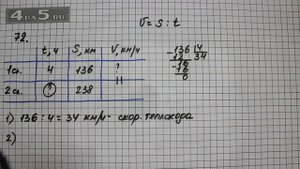 4ГДЗ.RU
V = S : t
72.
t, ч S, км V, км/ч
1сп. 4 136 ?
2 сп. ? 238 ||
136 4
12 34
16
16
0
1) 136 : 4 = 34 км/ч - скор. теплохода
2)